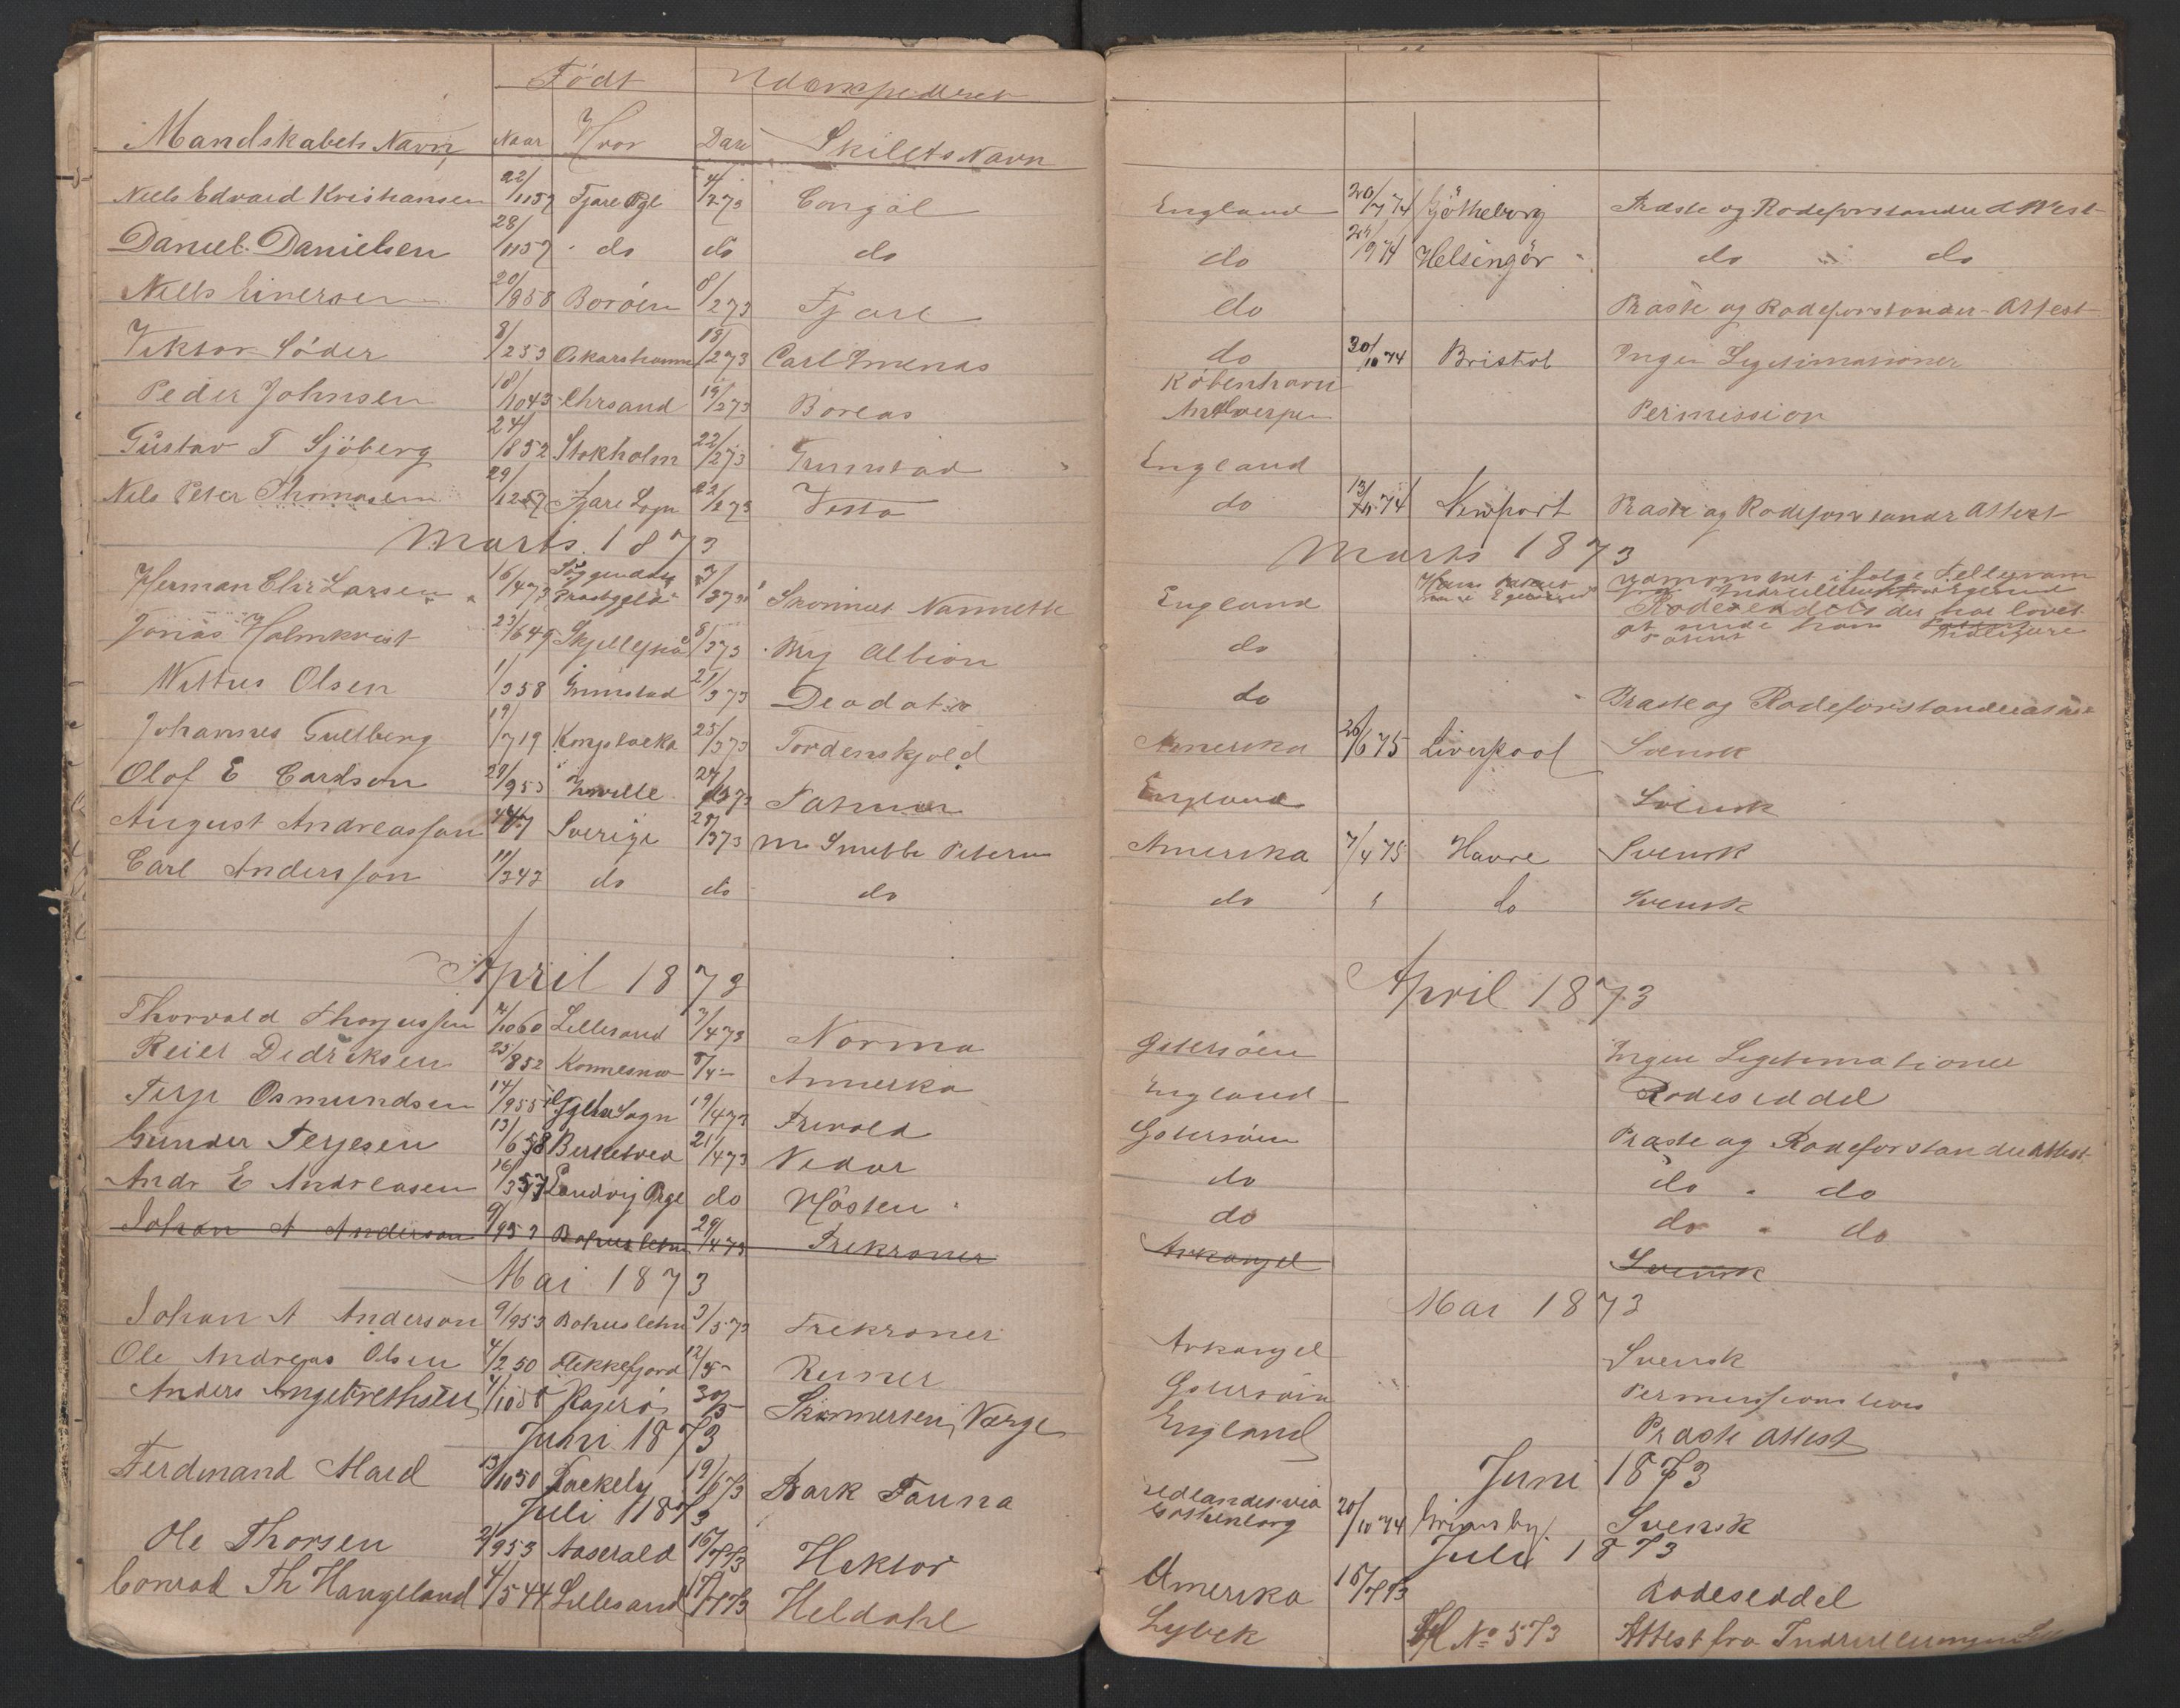 Født Udexpederet
Mandskabets Navn Naar Hvor Dato Skibets Navn
Niels Edvard Kristiansen 22/11 57 Fjære Pgl 4/2 73 Congal
Daniel Danielsen 28/11 57 do do do
Niels Einersen 20/9 58 Borøen 8/2 73 Fjære
Viktor Söder 8/2 53 Oskarshamn 18/2 73 Carl
Peder Johnsen 18/10 43 Chrsand 19/2 73 Boreas
Gustav T Sjöberg 24/8 52 Stokholm 22/2 73 Grimstad
Nils Peter Thomasen 29/12 57 Fjære Sogn 22/2 73 Vesta
Marts 1873
Herman Chr Larsen 16/4 73 Præstgeld 3/3 73 Skonnert Nannette
Jonas Holmkvist 23/6 49 8/3 73 Brig Albion
Wittus Olsen 1/3 58 Grimstad 21/3 73 Deodata
Johannes Gullberg 19/7 19 Kongelvelka 25/3 73 Tordenskjold
Olof E Carlson 28/9 53 27/3 73
August Andreasson Sverige 28/3 73 m Smith Petersen
Carl Andersson 11/3 43 do do do
April 1873
Thorvald Thorjussen 4/10 60 Lillesand 3/4 73 Norma
Reier Dedriksen 25/8 52 8/4 - Amerika
Terje Osmundsen 14/9 55 Sogn 19/4 73 Trevold
Gunder Terjesen 13/6 58 Birketved 21/4 73 Nedar
Andr E Andreasen 16/3 57 Landvig Prgl do Høsten
Johan A Anderson 9/9 53 Bohuslehn 29/4 73 Trekroner
Mai 1873
Johan A Anderson 9/9 53 Bohuslehn 3/5 73 Trekroner
Ole Andreas Olsen 4/2 50 Flekkefjord 12/5 - Reiner
Anders Ingebrethsen 4/10 58 Ragerø 30/5 - Skonnerten Norge
Juni 1873
Ferdinand Mard 13/10 50 Backeby 19/6 73 Bark Fauna
Juli 1873
Ole Thorsen 2/9 53 Aaserald 16/7 73 Hektor
Conrad Th Haugeland 4/5 44 Lillesand 17/7 73 Heldahl
England 20/7 74 Götheborg Præste og Rodeforstander Attest
do 24/9 74 Helsingör do do
do Præste og Rodeforstander-Attest
do 30/10 74 Bristol Ingen Legitimationer
København
Antverpen Permission
England
do 13/10 74 Newport Præste og Rodeforstandr Attest
Marts 1873
England udmønstret i følge Tellegram
fra
Rodeseddels der har lovet
at sende ham
do
do Præste og Rodeforstanderattest
Amerika 26/6 75 Liverpool Svensk
England Svensk
Amerika 7/4 75 Havre Svensk
do " do Svensk
April 1873
Østersöen Ingen Legitimationer
England Rodeseddel
Østersöen Præste og Rodeforstander Attest
do do " do
do do " do
Arkangel Svensk
Mai 1873
Arkangel Svensk
Østersöen Permissions bevis
England Præste attest
Juni 1873
Udlandet via
Gøtheborg 20/10 74 Grimsby Svensk
Juli 1873
Amerika 16/7 73 Rodeseddel
Lybek No 573 Attest fra Indrulleringen